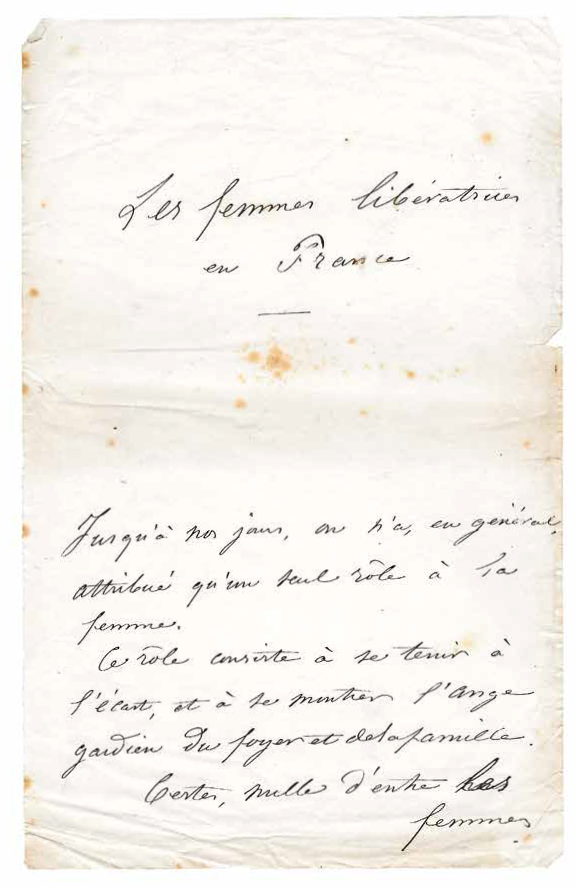 Les femmes libératrices
en France
Jusqu'à nos jours, on n'a, en général,
attribué qu'un seul rôle à la
femme.
Ce rôle consiste à se tenir à
l'écart, et à se montrer l'ange
gardien du foyer et de la famille.
Certes, nulle d'entre les
femmes